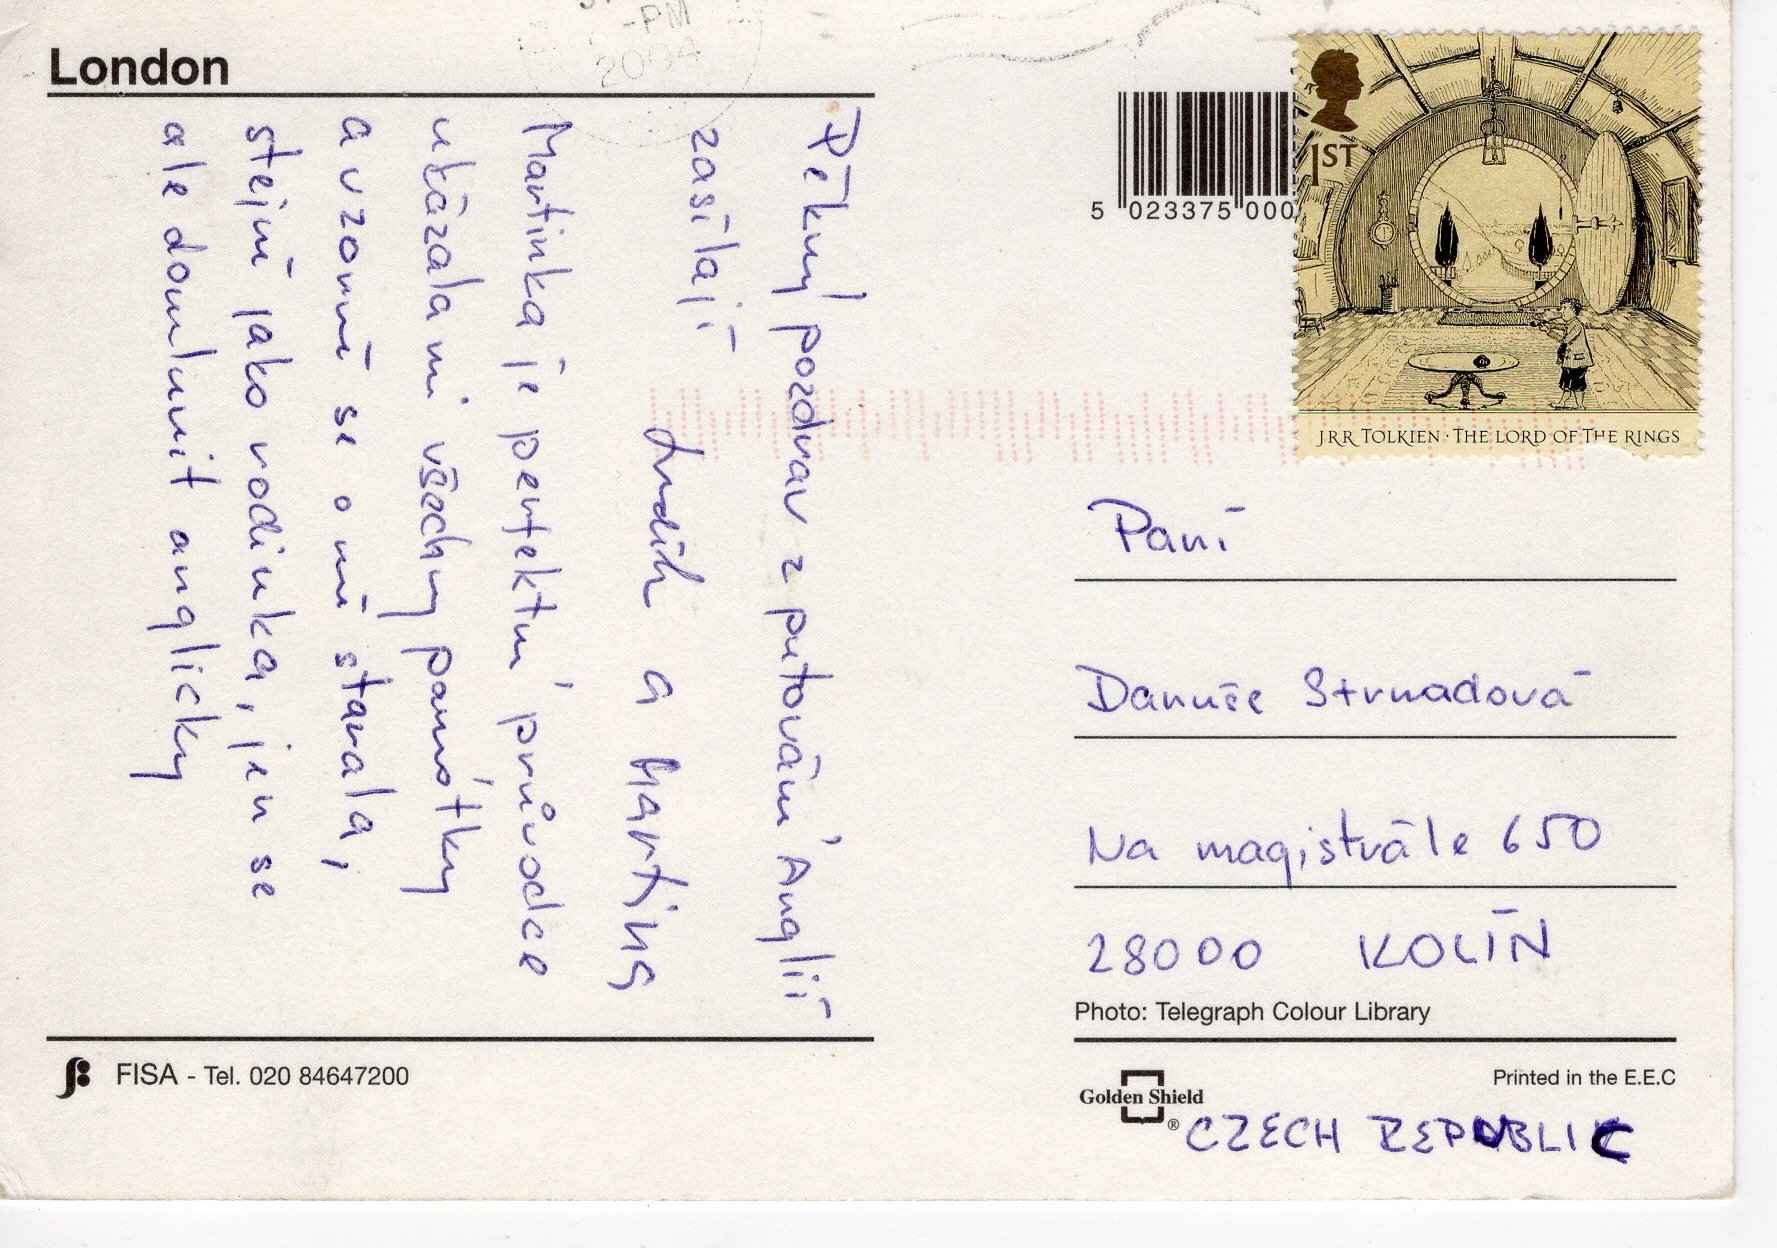 -PM
2004
London
Pěkný pozdrav z putování Anglií
zasílají
a Martina
Martinka je perfektní průvodce
ukázala mi všechny památky
a vzorně se o mě starala,
stejně jako rodinka, jen se
ale domluvit anglicky
FISA - Tel. 020 84647200
5 023375 000
1ST
JRR TOLKIEN · THE LORD OF THE RINGS
Paní
Danuše Strnadová
Na magistrále 650
28000 KOLÍN
Photo: Telegraph Colour Library
Printed in the E.E.C
Golden Shield
®
CZECH REPUBLIC